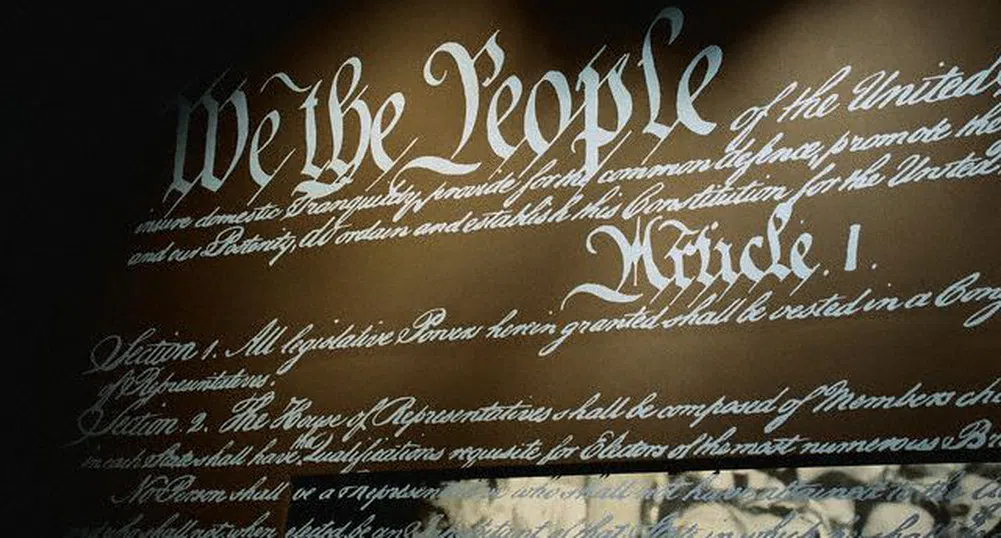 We the People of the United
insure domestic Tranquility, provide for the common defence, promote the
and our Posterity, do ordain and establish this Constitution for the United
Article. 1.
Section 1. All legislative Powers herein granted shall be vested in a Cong
of Representatives.
Section 2. The House of Representatives shall be composed of Members cho
in each State shall have the Qualifications requisite for Electors of the most numerous Br
No Person shall be a Representative who shall not have attained to the
and who shall not, when elected, be an Inhabitant of that State in which he shall